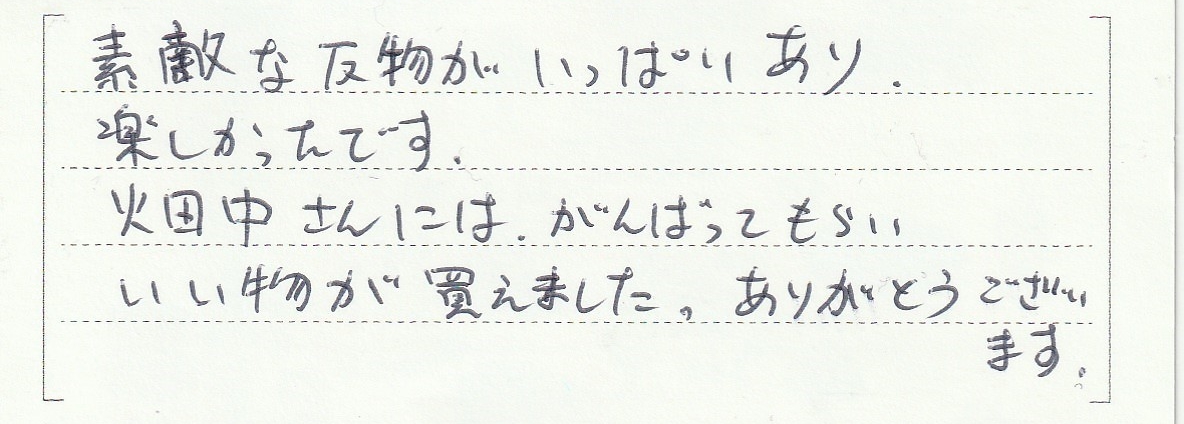 素敵な反物がいっぱいあり、
楽しかったです。
畑中さんには、がんばってもらい
いい物が買えました。ありがとうござい
ます。